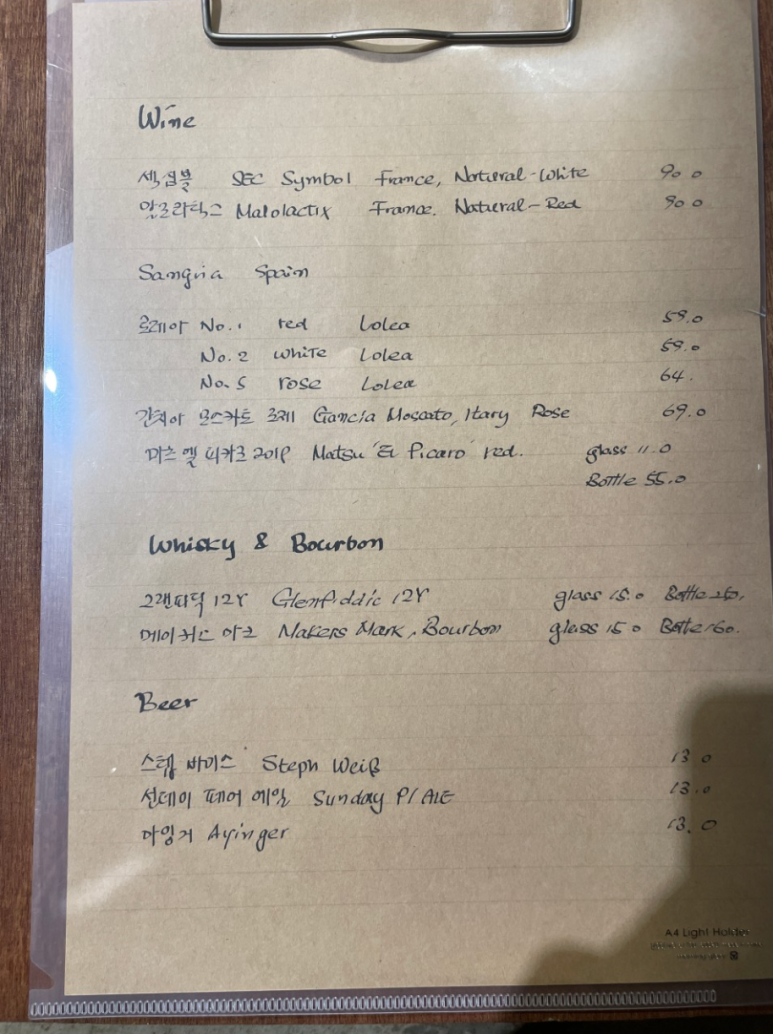 Wine
섹심볼 SEC Symbol France, Natural-White 90.0
말로락틱스 Malolactix France. Natural-Red 90.0
Sangria Spain
로레아 No.1 red Lolea 59.0
No.2 white Lolea 59.0
No.5 rose Lolea 64.
간치아 모스카토 로제 Gancia Moscato, Itary Rose 69.0
마츠 엘 피카로 2019 Matsu 'El Picaro' red. glass 11.0
Bottle 55.0
Whisky & Bourbon
그랜피딕 12Y Glenfiddic 12Y glass 15.0 Bottle
메이커스 마크 Makers Mark, Bourbon glass 15.0 Bottle 160.
Beer
스텝 바이스 Steph Weiß 13.0
선데이 페어 에일 Sunday P/ALE 13.0
아잉거 Ayinger 13.0
A4 Light Holder